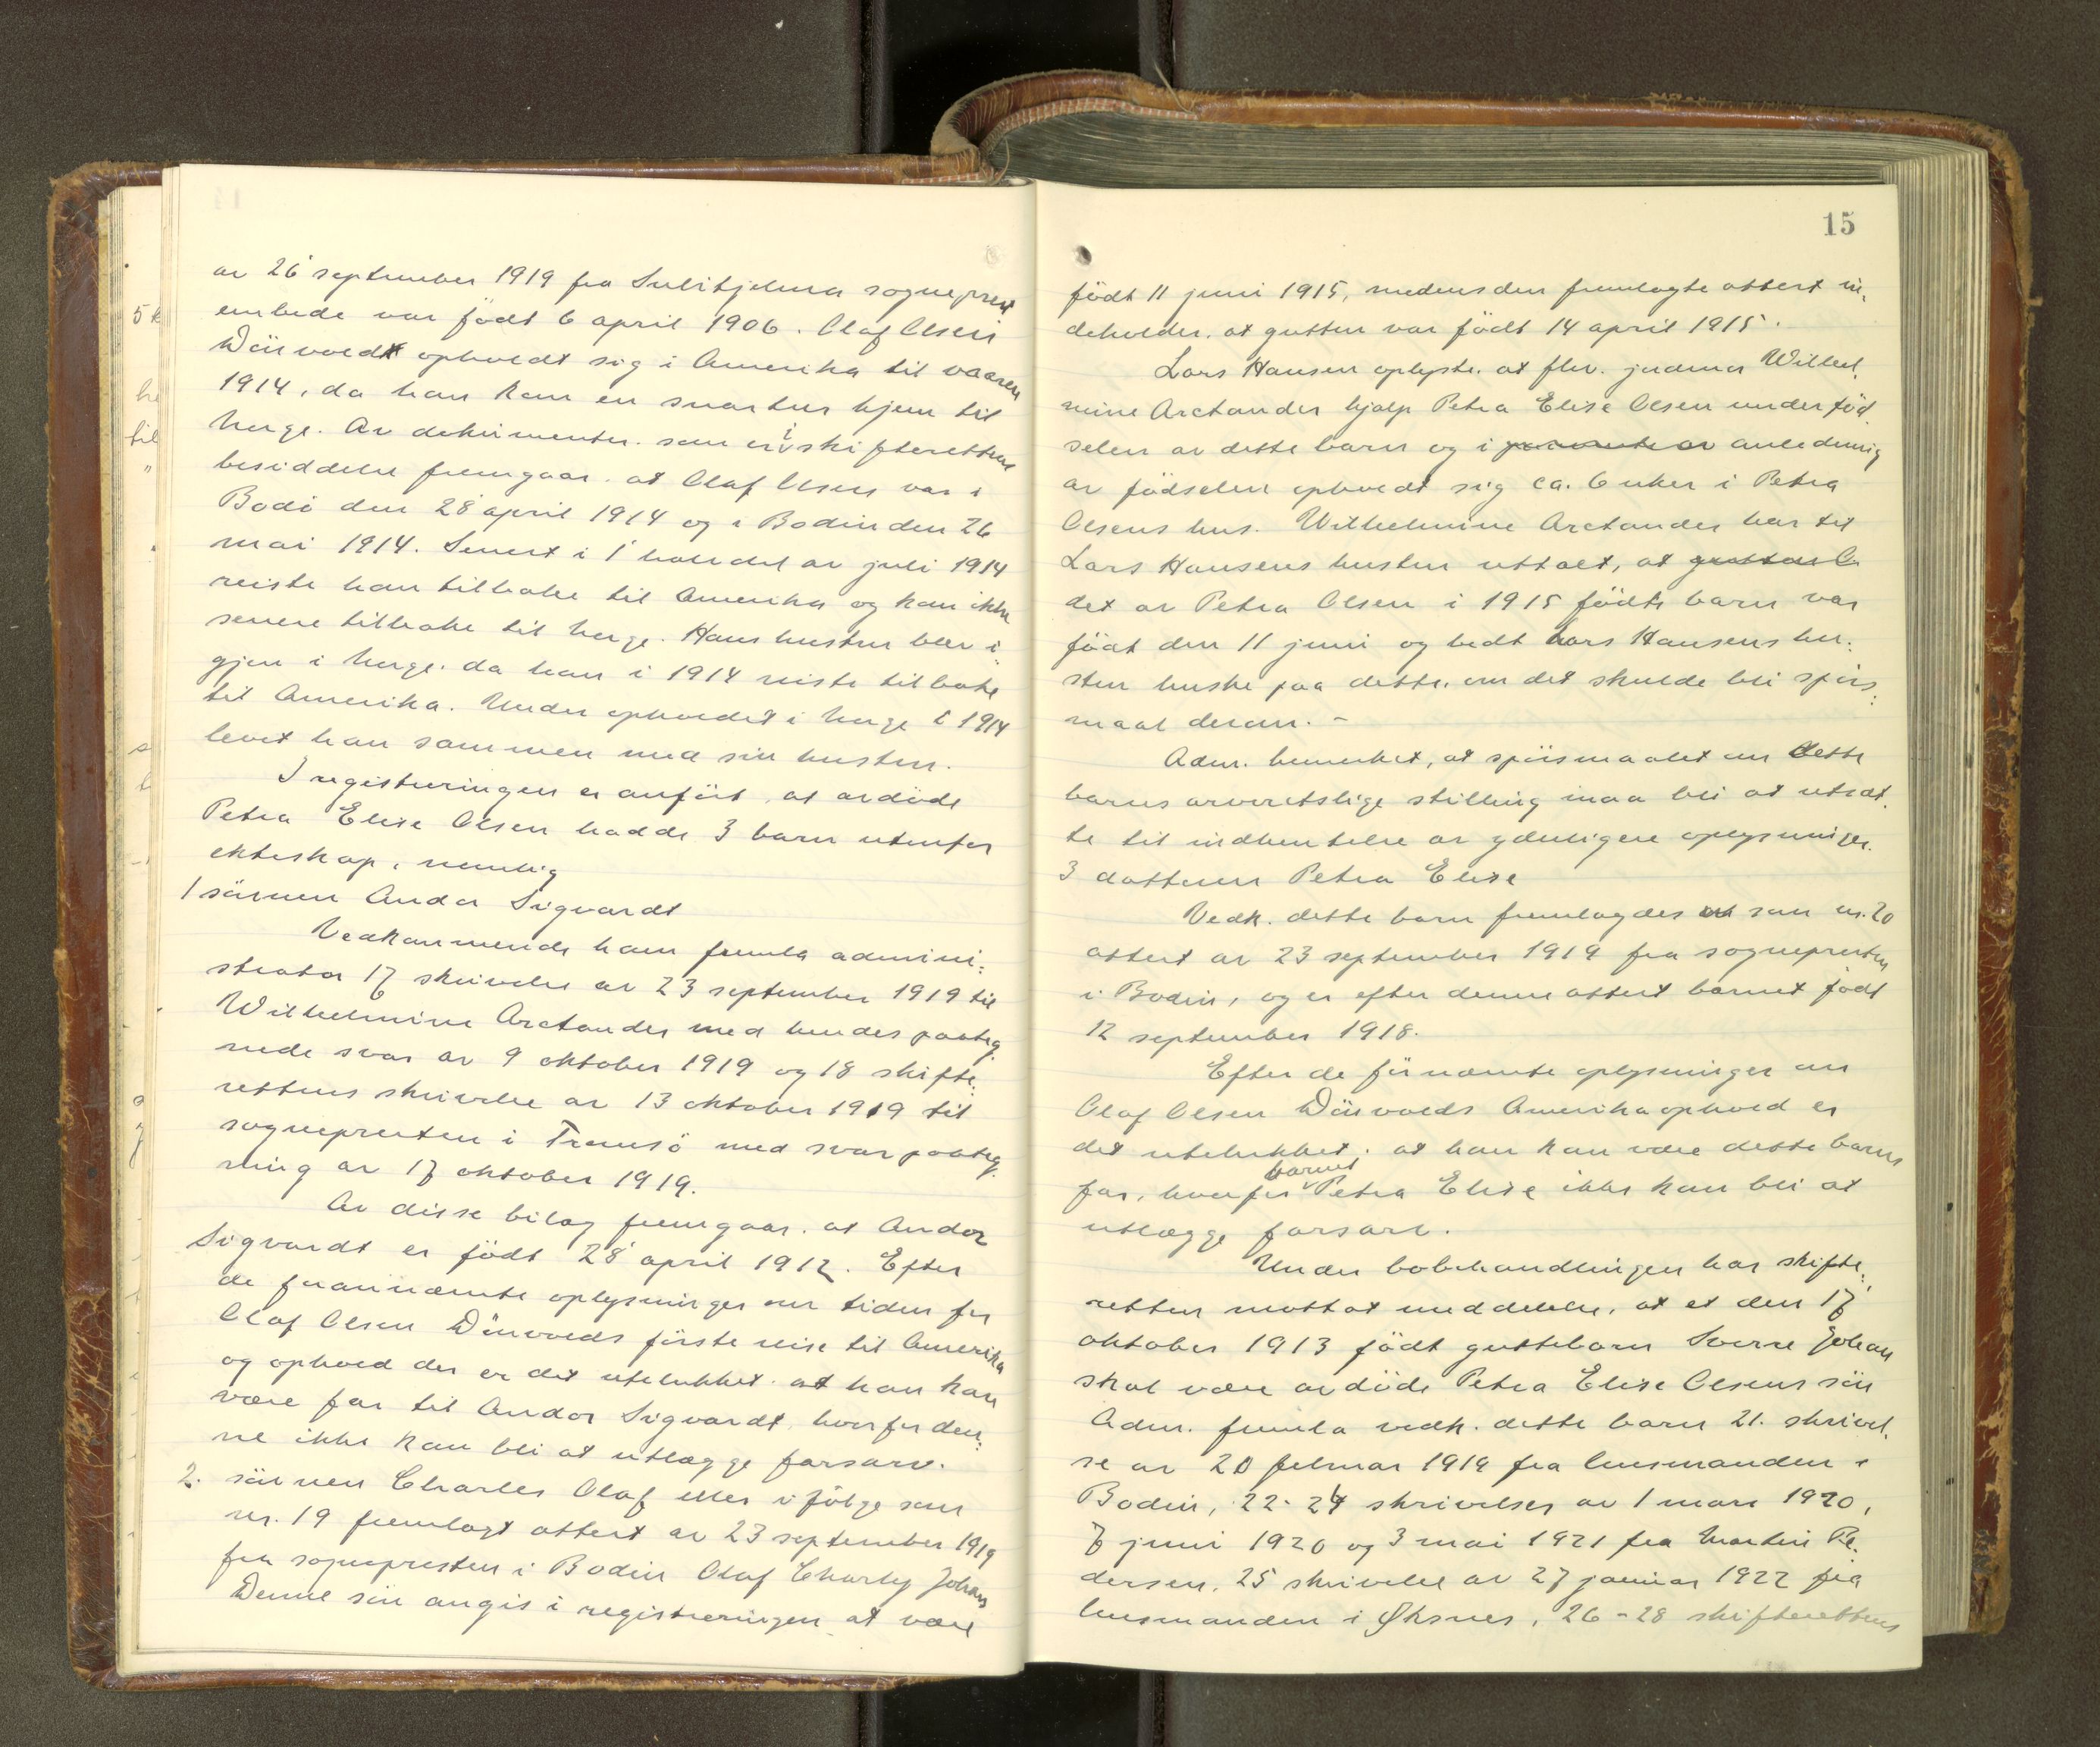 av 26 september 1919 fra Sulitjelma sogneprest
embede var født 6 april 1906. Olaf Olsen
Dúsvoldt opholdt sig i Amerika til vaaren
1914, da han kom en snartur hjem til
Norge. Av dokumenter som er i skifterettens
besiddelse fremgaar, at Olaf Olsen var i
Bodö den 28 april 1914 og i Bodin den 26
mai 1914. Senest i 1' halvdel av juli 1914
reiste han tilbake til Amerika og kom ikke
senere tilbake til Norge. Hans hustru blev i-
gjen i Norge, da han i 1914 reiste tilbake
til Amerika. Under opholdet i Norge i 1914
levet han sammen med sin hustru.
I registreringen er anført, at avdöde
Petra Elise Olsen hadde 3 barn utenfor
ekteskap, nemlig
1 sönnen Andor Sigvardt
Vedkommende ham fremla admini-
strator 17 skrivelse av 23 september 1919 til
Wilhelmine Arctander med hendes paateg-
nede svar av 9 oktober 1919 og 18 skifte-
rettens skrivelse av 13 oktober 1919 til
sognepresten i Tromsö med svarpaateg-
ning av 17 oktober 1919.
Av disse bilag fremgaar, at Andor
Sigvardt er født 28 april 1912. Efter
de forannævnte oplysninger om tiden for
Olaf Olsen förste reise til Amerika
og ophold der er det utelukket at han kan
være far til Andor Sigvardt, hvorfor den-
ne ikke kan bli at utlægge farsarv.
2. sönnen Charles Olaf eller ifölge som
nr. 19 fremlagt attest av 23 september 1919
fra sognepresten i Bodin Olaf Charly Johans
Denne sön angis i registreringen at være
15
født 11 juni 1915, medens den fremlagte attest in-
deholder, at gutten var født 14 april 1915.
Lars Hansen oplyste, at fhv. jordmor Wilhel-
mine Arctander hjalp Petra Elise Olsen under föd-
selen av dette barn og i anledning
av födselen opholdt sig ca. 6 uker i Petra
Olsens hus. Wilhelmine Arctander har til
Lars Hansens hustru uttalt, at
det av Petra Olsen i 1915 fødte barn var
født den 11 juni og bedt Lars Hansens hu-
stru huske paa dette, om det skulde bli spörs-
maal derom. -
Adm. bemerket, at spörsmaalet om dette
barns arveretslige stilling maa bli at utsæt-
te til indhentelse av yderligere oplysninger.
3 datteren Petra Elise
Vedk. dette barn fremlagdes som nr. 20
attest av 23 september 1919 fra sognepresten
i Bodin, og er efter denne attest barnet født
12 september 1918.
Efter de förnævnte oplysninger om
Olaf Olsen Amerikaophold er
det utelukket, at han kan være dette barns
far, hvorfor barnet Petra Elise ikke kan bli at
utlægge farsarv.
Under bobehandlingen har skifte-
retten mottat meddelelse, at et den 17
oktober 1913 født guttebarn Sverre Johan
skal være avdöde Petra Elise Olsens sön
Adm. fremla vedk. dette barn 21. skrivel-
se av 20 februar 1919 fra lensmanden i
Bodin, 22-24 skrivelser av 1 mars 1920,
7 juni 1920 og 3 mai 1921 fra Martin Pe-
dersen, 25 skrivelse av 27 januar 1922 fra
lensmanden i Øksnes, 26-28 skifterettens